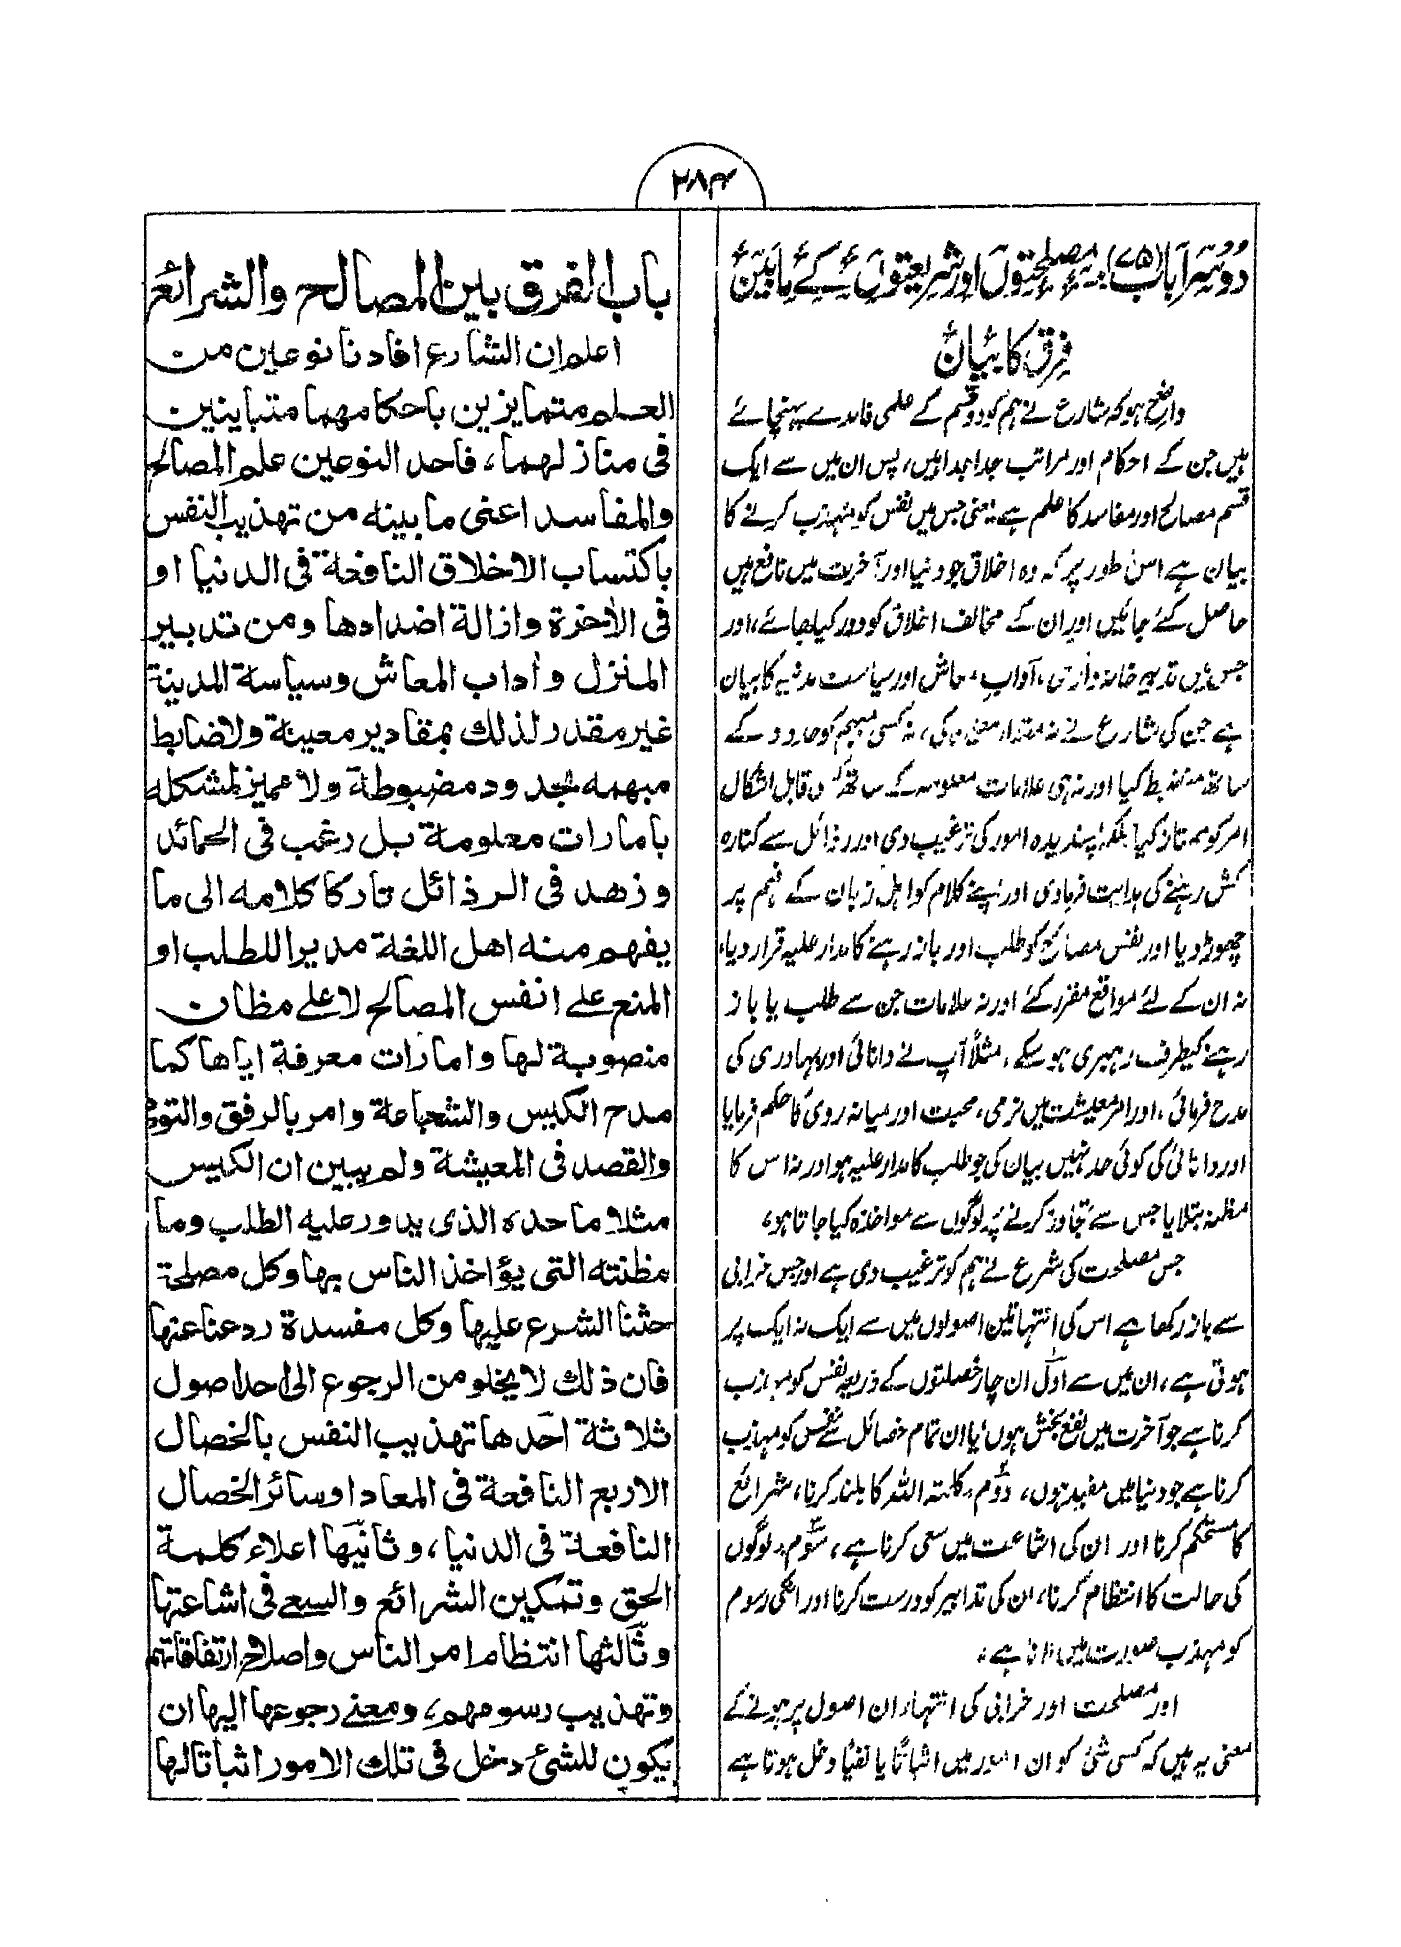 ۲۸۴
دوسرا باب (۷۵) مصلحتوں اور شریعتوں کے مابین
فرق کا بیان
واضح ہو کہ شارع نے ہم کو دو قسم کے علمی فائدے پہنچائے
ہیں جن کے احکام اور مراتب جدا جدا ہیں، پس ان میں سے ایک
قسم مصالح اور مفاسد کا علم ہے یعنی جس میں نفس کو مہذب کرنے کا
بیان ہے اس طور پر کہ وہ اخلاق جو دنیا اور آخرت میں نافع ہیں
حاصل کئے جائیں اور ان کے مخالف اخلاق کو دور کیا جائے، اور
جس میں تدبیر خانہ داری، آداب معاش اور سیاست مدنیہ کا بیان
ہے جن کی شارع نے نہ مقدار معین کی، نہ کسی مبہم کو حدود کے
ساتھ منضبط کیا اور نہ ہی علامات معلومہ کے ساتھ کسی قابل اشکال
امر کو ممتاز کیا بلکہ پسندیدہ امور کی ترغیب دی اور رذائل سے کنارہ
کش رہنے کی ہدایت فرمادی اور اپنے کلام کو اہل زبان کے فہم پر
چھوڑ دیا اور نفس مصالح کو طلب اور باز رہنے کا مدار علیہ قرار دیا،
نہ ان کے لئے مواقع مقرر کئے اور نہ علامات جن سے طلب یا باز
رہنے کیطرف رہبری ہو سکے، مثلاً آپ نے دانائی اور بہادری کی
مدح فرمائی، اور امر معیشت میں نرمی، محبت اور میانہ روی کا حکم فرمایا
اور دانائی کی کوئی حد نہیں بیان کی جو طلب کا مدار علیہ ہو اور نہ اس کا
مظنہ بتلایا جس سے تجاوز کرنے پر لوگوں سے مواخذہ کیا جاتا ہو،
جس مصلحت کی شرع نے ہم کو ترغیب دی ہے اور جس خرابی
سے باز رکھا ہے اس کی انتہا تین اصولوں میں سے ایک نہ ایک پر
ہوتی ہے، ان میں سے اول ان چار خصلتوں کے ذریعہ نفس کو مہذب
کرنا ہے جو آخرت میں نفع بخش ہوں یا ان تمام خصائل سے نفس کو مہذب
کرنا ہے جو دنیا میں مفید ہوں، دوم، کلمتہ اللہ کا بلند کرنا، شرائع
کا مستحکم کرنا اور ان کی اشاعت میں سعی کرنا ہے، سوم، لوگوں
کی حالت کا انتظام کرنا، ان کی تدابیر کو درست کرنا اور انکی رسوم
کو مہذب صورت میں لانا ہے،
اور مصلحت اور خرابی کی انتہاء ان اصول پر ہونے کے
معنی یہ ہیں کہ کسی شئ کو ان امور میں اثباتاً یا نفیاً دخل ہوتا ہے
باب الفرق بين المصالح والشرائع
اعلم ان الشارع افادنا نوعين من
العلم متمايزين باحكامهما متباينين
فى منازلهما، فاحد النوعين علم المصالح
والمفاسد اعنى ما بينه من تهذيب النفس
باكتساب الاخلاق النافعة فى الدنيا او
فى الأخرة وازالة اضدادها ومن تدبير
المنزل وأداب المعاش وسياسة المدينة
غير مقدر لذلك بمقادير معينة ولا ضابط
مبهمه بحدود مضبوطة ولا مميز لمشكله
بامارات معلومة بل رغب فى الحمائد
وزهد فى الرذائل تاركا كلامه الى ما
يفهم منه اهل اللغة مديرا للطلب او
المنع على انفس المصالح لا على مظان
منصوبة لها وامارات معرفة اياها كما
مدح الكيس والشجاعة وامر بالرفق والتودد
والقصد فى المعيشة ولم يبين ان الكيس
مثلا ما حده الذى يدور عليه الطلب وما
مظنته التى يؤاخذ الناس بها وكل مصلحة
حثنا الشرع عليها وكل مفسدة ردعنا عنها
فان ذلك لا يخلو من الرجوع الى احد اصول
ثلاثة احدها تهذيب النفس بالخصال
الاربع النافعة فى المعاد او سائر الخصال
النافعة فى الدنيا، وثانيها اعلاء كلمة
الحق وتمكين الشرائع والسعى فى اشاعتها
وثالثها انتظام امر الناس واصلاح ارتفاقاتهم
وتهذيب رسومهم، ومعنى رجوعها اليها ان
يكون للشئ دخل فى تلك الامور اثباتا لها